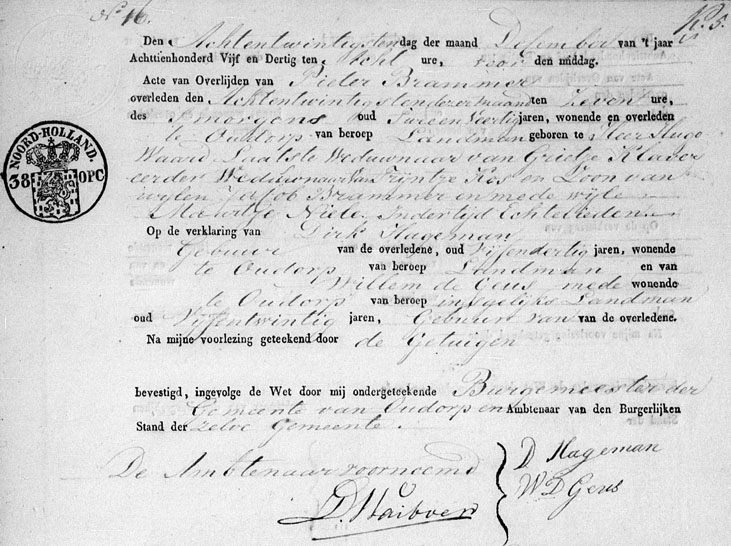 No 16.
Den Achtentwintigsten dag der maand December van 't jaar
Achttienhonderd Vijf en Dertig ten Acht ure, voor den middag.
Acte van Overlijden van Pieter Brammer
overleden den Achtentwintigsten dezer maand ten Zeven ure,
des 's morgens oud Twee en Veertig jaren, wonende en overleden
te Oudorp van beroep Landman geboren te Heer Hugo
Waard Laatste Weduwnaar van Grietje Klaver
eerder Weduwnaar van Trijntje Kos en Zoon van
wijlen Jacob Brammer en mede wijle
Maartje Niele In der tijd Echtelieden
Op de verklaring van Dirk Hageman
Gebuur van de overledene, oud Vijfendertig jaren, wonende
te Oudorp van beroep Landman en van
Willem de Geus mede wonende
te Oudorp van beroep insgelijks Landman
oud Vijfentwintig jaren, Gebuur van van de overledene.
Na mijne voorlezing geteekend door de Getuigen
bevestigd, ingevolge de Wet door mij ondergeteekende Burgemeester der
Gemeente van Oudorp en Ambtenaar van den Burgerlijken
Stand der zelve Gemeente.
De Ambtenaar voornoemd
D Hageman
W D Geus
NOORD-HOLLAND.
38 OPC